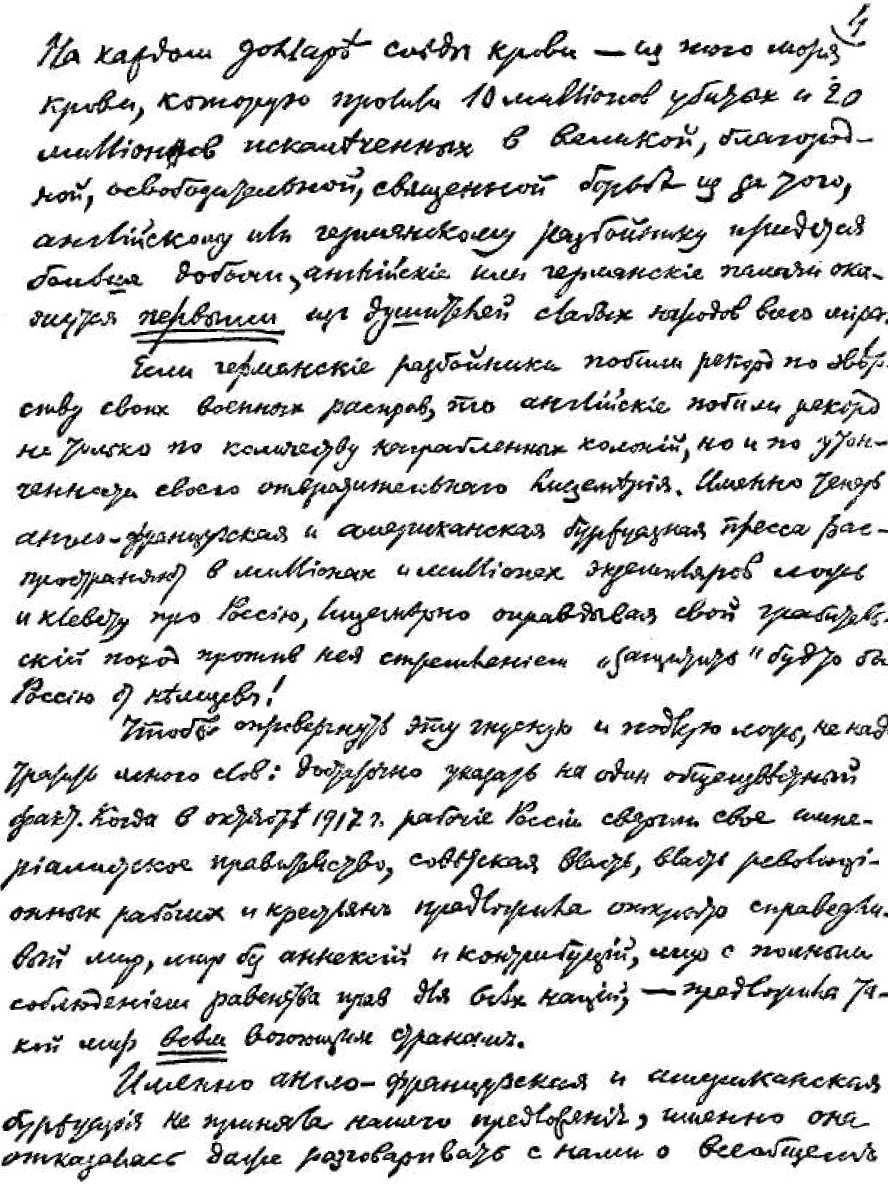 4
На каждом долларѣ слѣды крови — из того моря
крови, которую пролили 10 миллионов убитых и 20
миллионов искалѣченных в великой, благород-
ной, освободительной, священной борьбѣ из за того,
английскому или германскому разбойнику придется
больше добычи, английскіе или германскіе палачи ока-
жутся первыми из душителей слабых народов всего міра.
Если германскіе разбойники побили рекорд по звѣр-
ству своих военных расправ, то английскіе побили рекорд
не только по количеству награбленных колоній, но и по утон-
ченности своего отвратительнаго лицемѣрія. Именно теперь
англо-французская и американская буржуазная пресса рас-
пространяют в милліонах и милліонах экземпляров ложь
и клевету про Россію, лицемѣрно оправдывая свой грабитель-
скій поход против нея стремленіем „защитить" будто бы
Россію от нѣмцев!
Чтобы опровергнуть эту гнусную и подлую ложь, не надо
тратить много слов: достаточно указать на один общеизвѣстный
факт. Когда в октябрѣ 1917 г. рабочіе Россіи свергли свое импе-
ріалистское правительство, совѣтская власть, власть революці-
онных рабочих и крестьян предложила открыто справедли-
вый мир, мир без аннексій и контрибуцій, мир с полным
соблюденіем равенства прав для всѣх націй, — предложила та-
кой мир всѣм воюющим странам.
Именно англо-французская и американская
буржуазія не приняла нашего предложенія, именно она
отказалась даже разговаривать с нами о всеобщем